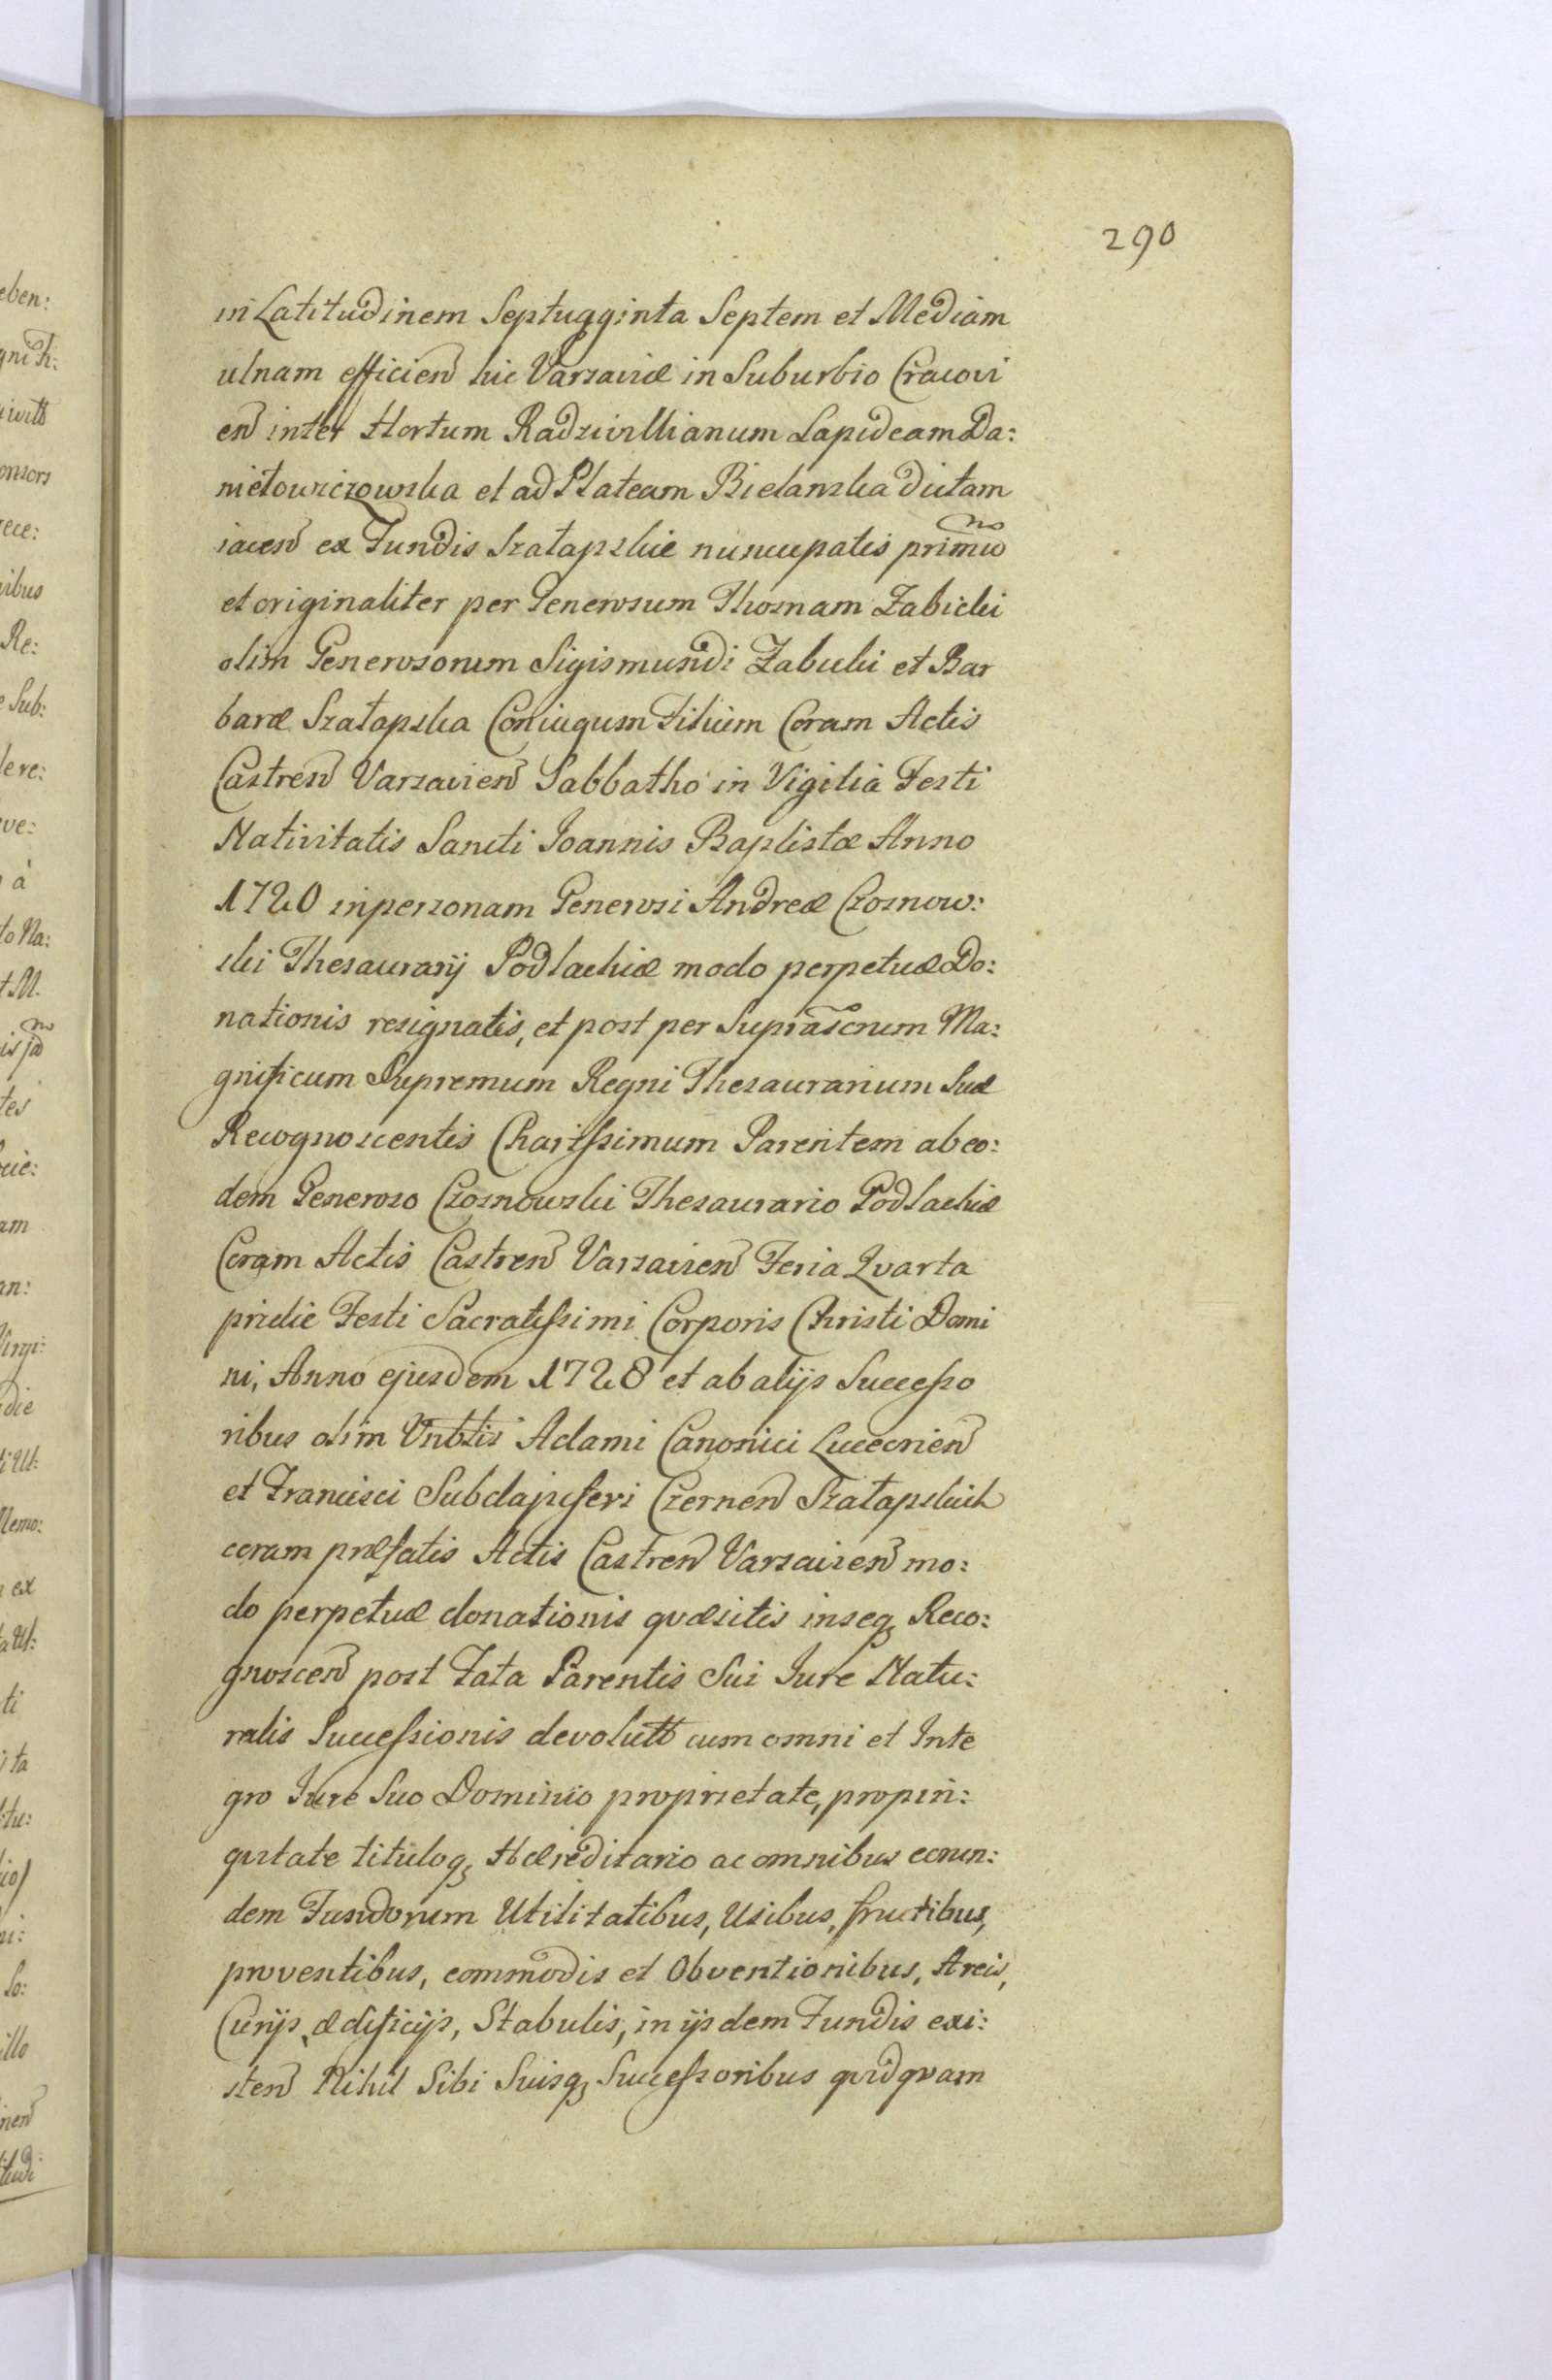 290
in Latitudinem Septugginta Septem et Mediam
ulnam efficien hic Varsaviæ in Suburbio Cracovi
en inter Hortum Radziwillianum Lapideam Da:
niełowiczowska et ad Plateam Bielanska dictam
iacen ex Fundis Szałapskie nuncupatis primo
et originaliter per Generosum Thomam Zabicki
olim Generosorum Sigismundi Zabicki et Bar
baræ Szałapska Coniugum Filium Coram Actis
Castren Varsavien Sabbatho in Vigilia Festi
Nativitatis Sancti Joannis Baptistæ Anno
1720 in personam Generosi Andreæ Czosnow:
ski Thesaurarij Podlachiæ modo perpetuæ Do:
nationis resignatis, et post per Suprascrum Ma:
gnificum Supremum Regni Thesaurarium Suæ
Recognoscentis Charissimum Parentem ab eo:
dem Generoso Czosnowski Thesaurario Podlachiæ
Coram Actis Castren Varsavien Feria Qvarta
pridie Festi Sacratissimi Corporis Christi Domi
ni, Anno ejusdem 1728 et ab alijs Successo
ribus olim Vnbtis Adami Canonici Luceorien
et Francisci Subdapiferi Czernen Szałapskich
coram præfatis Actis Castren Varsavien mo:
do perpetuæ donationis qvæsitis inseq Reco:
gnoscen post Fata Parentis Sui Jure Natu:
ralis Successionis devolutt cum omni et Inte
gro Jure Suo Dominio proprietate, propin:
qvitate tituloq Hæreditario ac omnibus eorun:
dem Fundorum Utilitatibus, Usibus, fructibus,
proventibus, commodis et Obventionibus, Areis,
Curijs, ædificijs, Stabulis, in ijsdem Fundis exi:
sten Nihil Sibi Suisq Successoribus qvidqvam